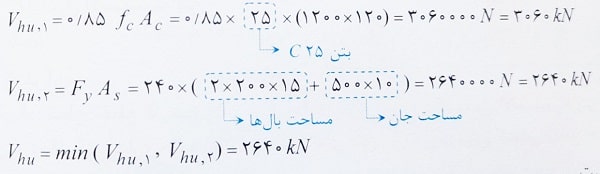 V_{hu,۱} = ۰/۸۵ f_c A_c = ۰/۸۵ × ۲۵ × (۱۲۰۰ × ۱۲۰) = ۳۰۶۰۰۰۰ N = ۳۰۶۰ kN
بتن C ۲۵
V_{hu,۲} = F_y A_s = ۲۴۰ × (۲×۲۰۰×۱۵ + ۵۰۰×۱۰) = ۲۶۴۰۰۰۰ N = ۲۶۴۰ kN
مساحت بال‌ها مساحت جان
V_{hu} = min (V_{hu,۱}, V_{hu,۲}) = ۲۶۴۰ kN